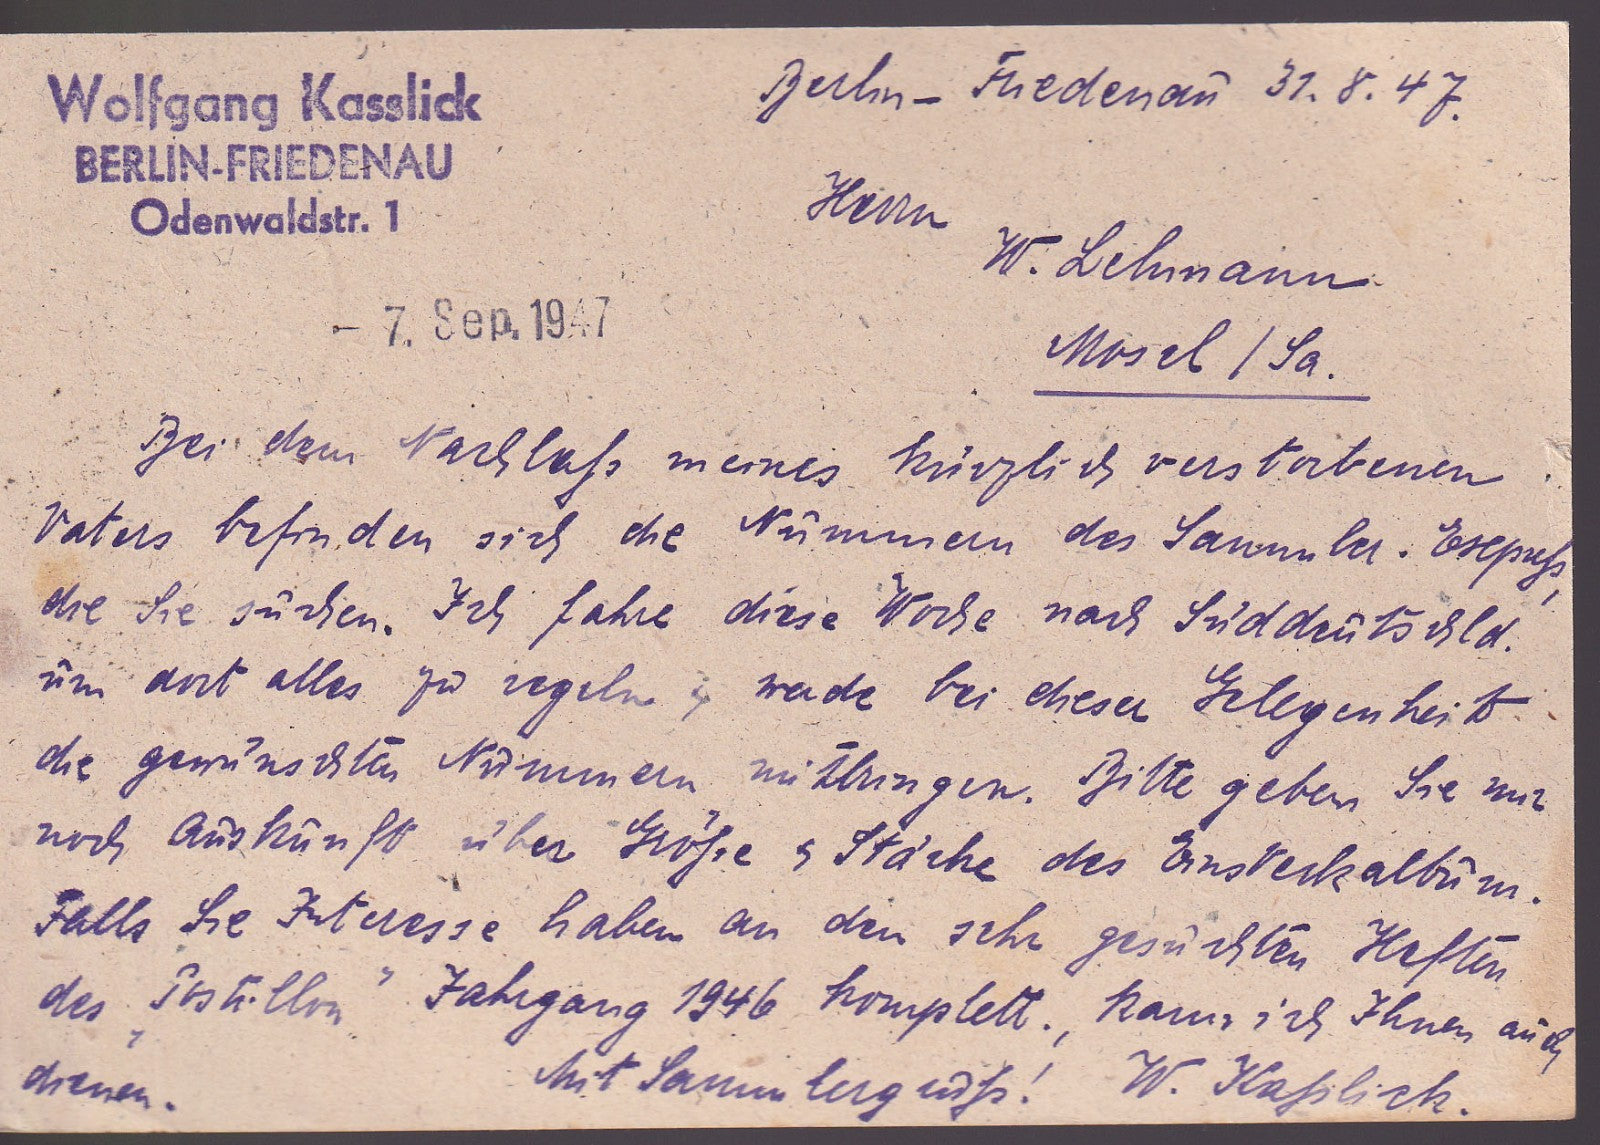 Wolfgang Kasslick
BERLIN-FRIEDENAU
Odenwaldstr. 1
Berlin-Friedenau 31.8.47.
Herrn
W. Lehmann
Mosel / Sa.
- 7. Sep. 1947
Bei dem Nachlaß meines kürzlich verstorbenen
Vaters befinden sich die Nummern des Sammler-
die Sie suchen. Ich fahre diese Woche nach Süddeutschld.
um dort alles zu regeln & werde bei dieser Gelegenheit
die gewünschten Nummern mitbringen. Bitte geben Sie mir
noch Auskunft über Größe & Stärke des Einsteckalbum.
Falls Sie Interesse haben an den sehr gesuchten Heften
des „Postillon" Jahrgang 1946 komplett., kann ich Ihnen auch
dienen. Mit Sammlergruß! W. Kaßlick.